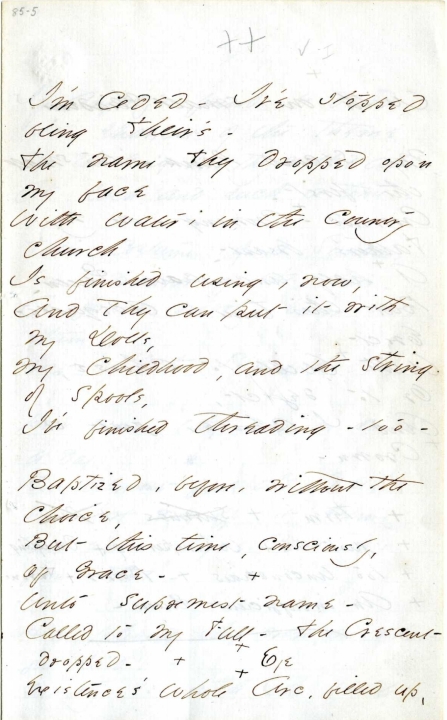 85-5
++
I'm Ceded - I've stopped
being Their's -
The name They dropped opon
my face
With water, in the Country
Church
Is finished using, now,
And They can put it with
my Dolls,
My Childhood, and the String
of Spools,
I've finished threading - too -
Baptized, before, without the
Choice,
But this time, Consciously,
of Grace - +
Unto Supremest name -
Called to my Full - The Crescent
dropped - + + Eye
Existence's whole Arc, filled up,